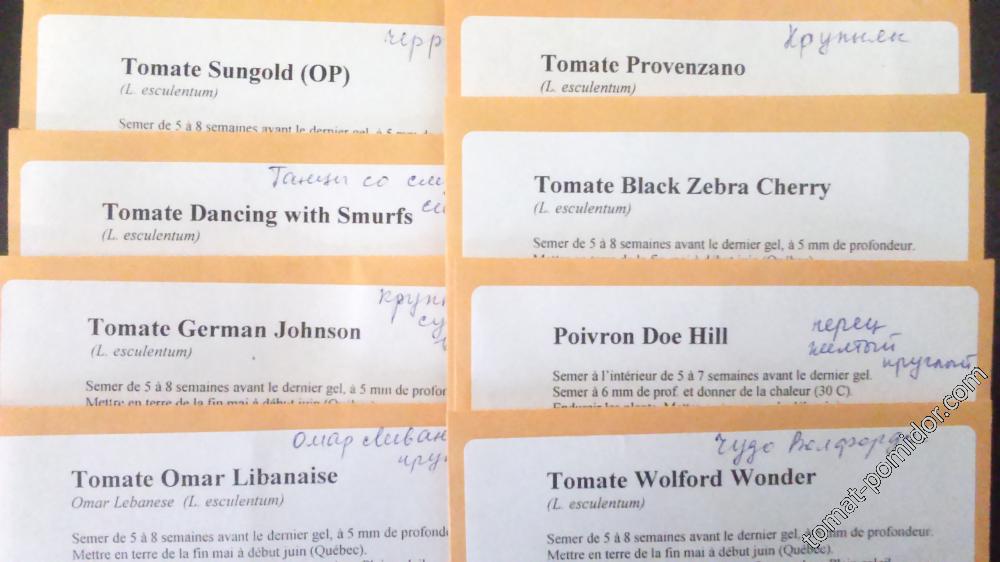 Tomate Sungold (OP)
(L. esculentum)
Semer de 5 à 8 semaines avant le dernier gel, à 5 mm d
Танцы со
Tomate Dancing with Smurfs
(L. esculentum)
Tomate German Johnson
(L. esculentum)
Semer de 5 à 8 semaines avant le dernier gel, à 5 mm de profon
Mettre en terre de la fin mai à début juin (Québec)
Омар Ливан
Tomate Omar Libanaise
Omar Lebanese (L. esculentum)
Semer de 5 à 8 semaines avant le dernier gel, à 5 mm de profonde
Mettre en terre de la fin mai à début juin (Québec).
Крупняк
Tomate Provenzano
(L. esculentum)
Tomate Black Zebra Cherry
(L. esculentum)
Semer de 5 à 8 semaines avant le dernier gel, à 5 mm de profondeur.
Mettre en terre de la fin mai à début juin (Québec)
перец
желтый
круглый
Poivron Doe Hill
Semer à l'intérieur de 5 à 7 semaines avant le dernier gel.
Semer à 6 mm de prof. et donner de la chaleur (30 C).
Чудо Волфорда
Tomate Wolford Wonder
(L. esculentum)
Semer de 5 à 8 semaines avant le dernier gel, à 5 mm de profondeur.
Mettre en terre de la fin mai à début juin (Québec).
tomat-pomidor.com